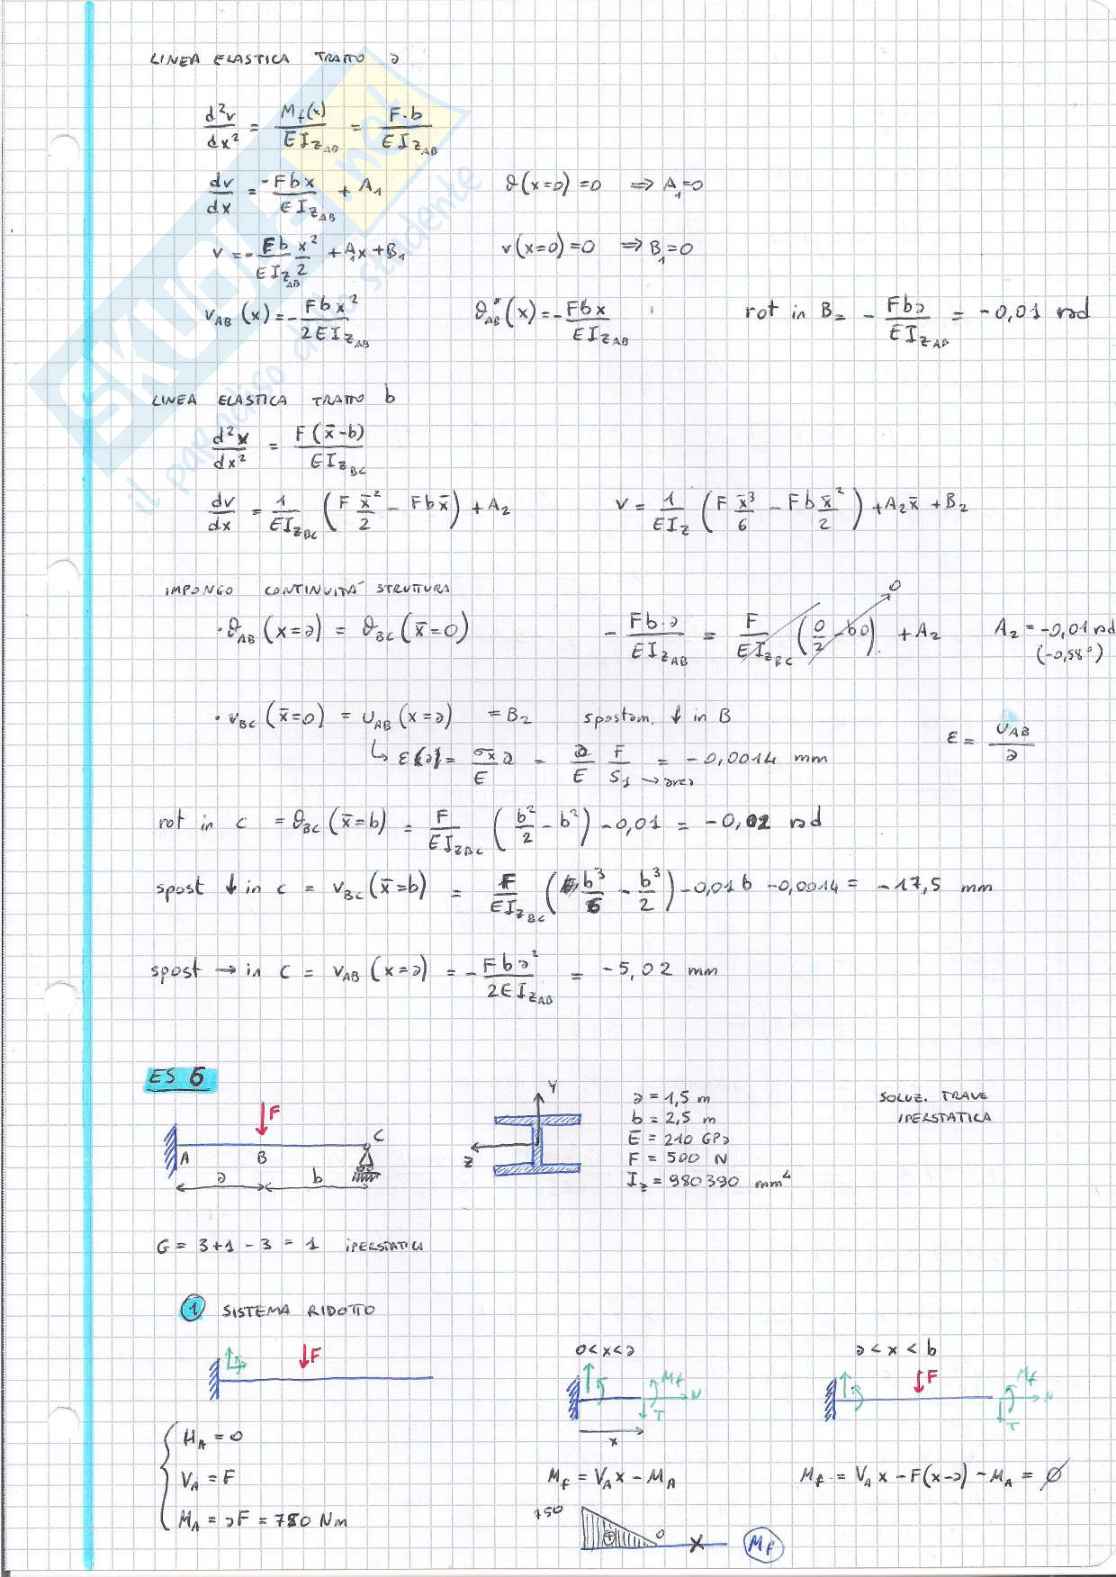 LINEA ELASTICA TRATTO a
d²v/dx² = M_f(x)/EI_Z_AB = F·b/EI_Z_AB
dv/dx = -Fbx/EI_Z_AB + A₁    ϑ(x=0)=0 ⇒ A₁=0
v = - Fb/EI_Z_AB x²/2 + A₁x + B₁    v(x=0)=0 ⇒ B₁=0
v_AB(x) = - Fbx²/2EI_Z_AB    ϑ_AB(x) = - Fbx/EI_Z_AB    rot in B = - Fba/EI_Z_AB = -0,01 rad
LINEA ELASTICA TRATTO b
d²v/dx² = F(x̄-b)/EI_Z_BC
dv/dx = 1/EI_Z_BC (F x̄²/2 - Fbx̄) + A₂    v = 1/EI_Z (F x̄³/6 - Fb x̄²/2) + A₂x̄ + B₂
IMPONGO CONTINUITÀ STRUTTURA
· ϑ_AB(x=a) = ϑ_BC(x̄=0)    - Fb·a/EI_Z_AB = F/EI_Z_BC (0/2 - b0) + A₂    0    A₂ = -0,01 rad
(-0,58°)
· v_BC(x̄=0) = u_AB(x=a) = B₂    spostam. ↓ in B    ε = u_AB/a
↳ ε(a) = σx/E a - a/E F/S₁ → area = -0,0014 mm
rot in C = ϑ_BC(x̄=b) = F/EI_Z_BC (b²/2 - b²) - 0,01 = -0,02 rad
spost ↓ in C = v_BC(x̄=b) = F/EI_Z_BC (b³/6 - b³/2) - 0,01b - 0,0014 = -17,5 mm
spost → in C = v_AB(x=a) = - Fba²/2EI_Z_AB = -5,02 mm
ES 6
F
A B C
a b
Y
Z
a = 1,5 m
b = 2,5 m
E = 210 GPa
F = 500 N
I_z = 980390 mm⁴
SOLUZ. TRAVE
IPERSTATICA
G = 3+1-3 = 1 IPERSTATICA
1 SISTEMA RIDOTTO
F
0<x<a
M_f N
T
x
a<x<b
F
M_f N
T
H_A = 0
V_A = F
M_A = aF = 750 Nm
M_f = V_A x - M_A
M_f = V_A x - F(x-a) - M_A = ∅
750
+
0
x
M_f
SKUOLA.net
il paradiso dello studente